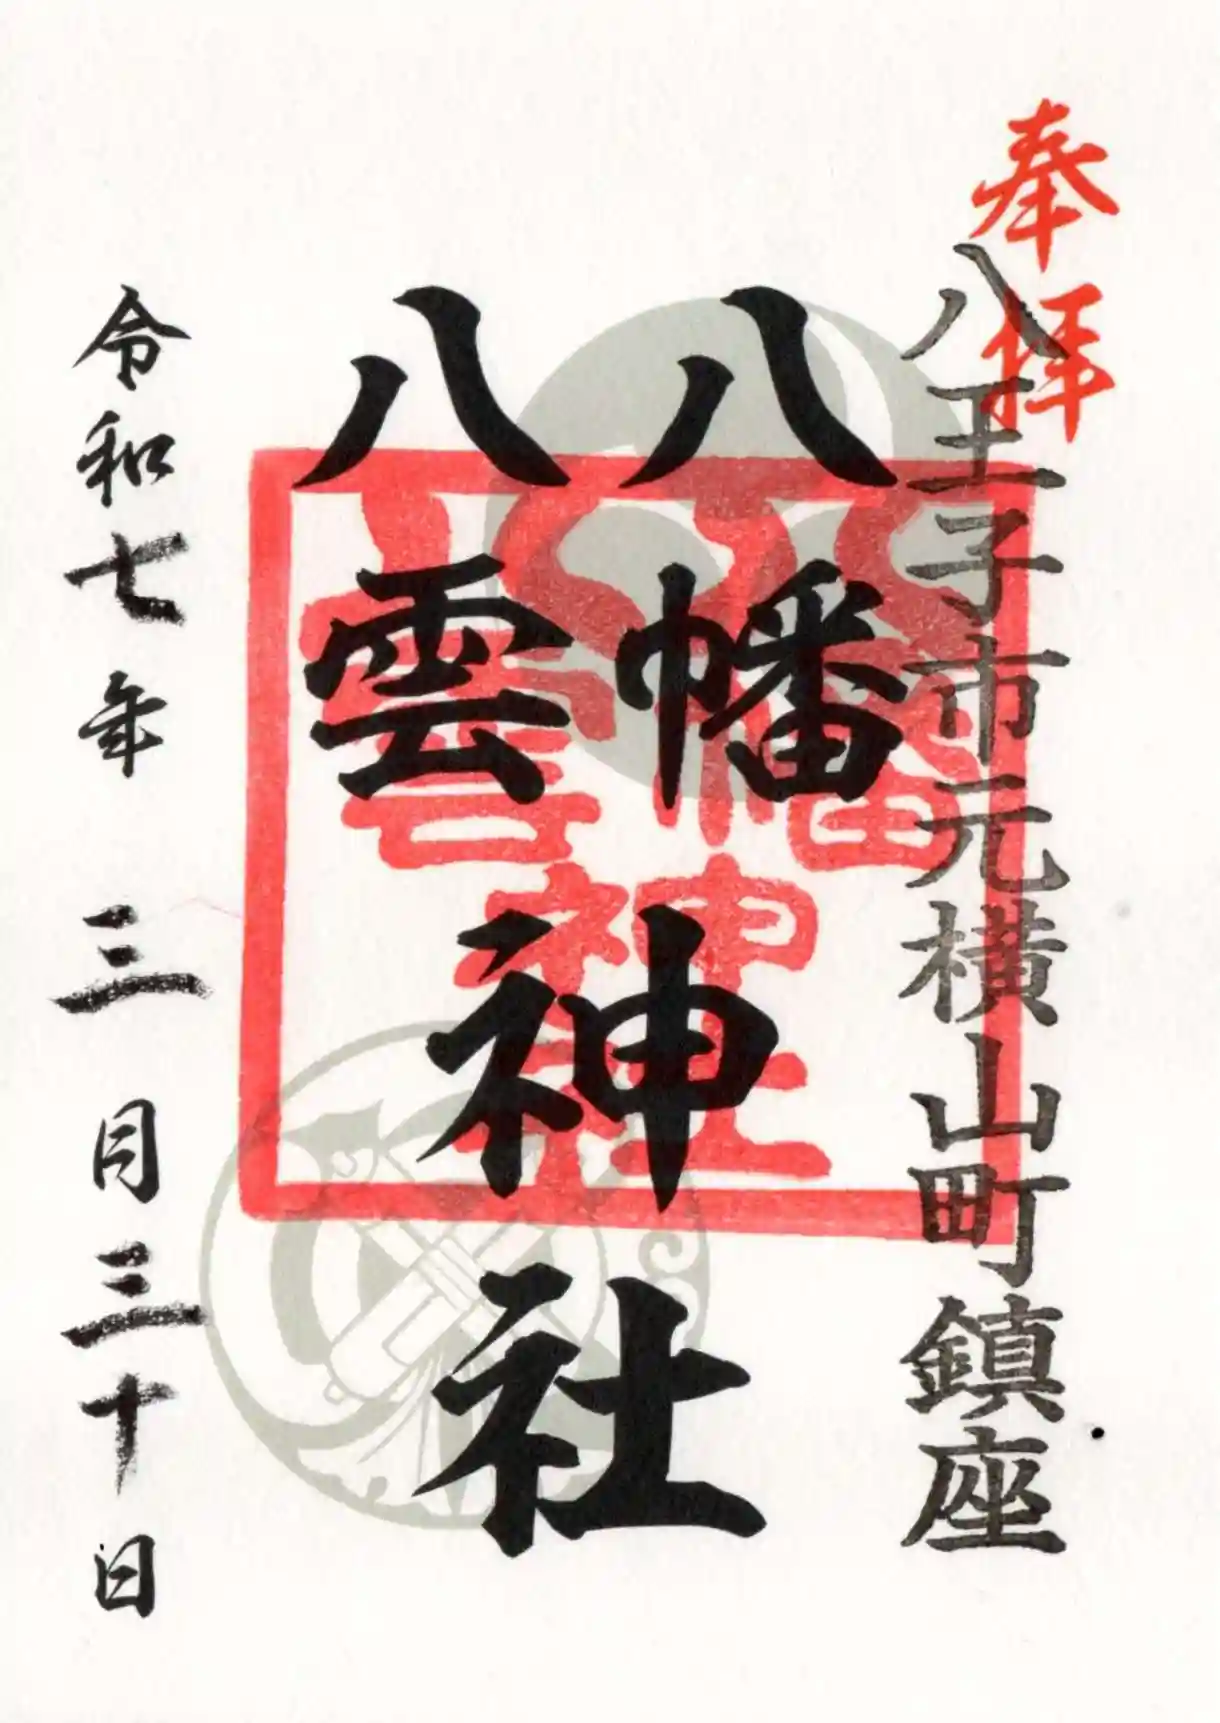 奉拝
八王子市元横山町鎮座
八幡
八雲
神社
八幡
八雲
神社
令和七年 三月三十日